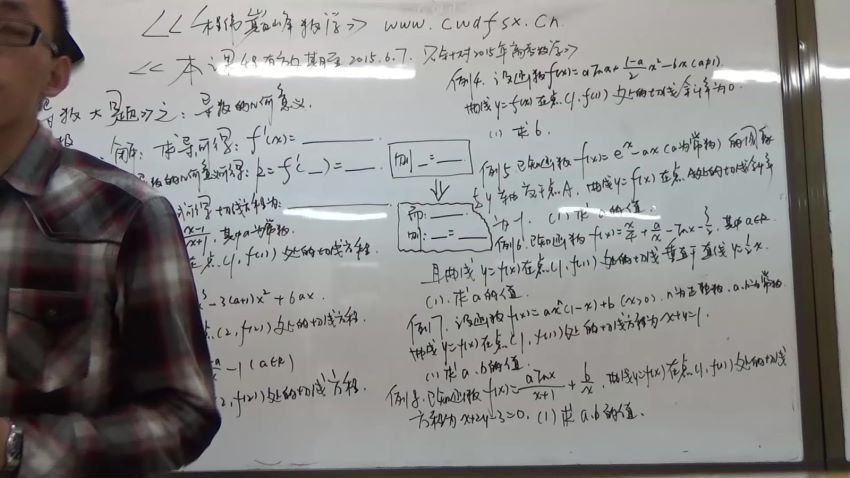 <<程伟巅峰数学>> www.cwdfsx.cn.
<<本课件有效期至2015.6.7. 只针对2015年高考数学>>
数大题>>之: 导数的几何意义.
求导可得: f'(x)=
的几何意义可得: k=f'( )=
切线方程为:
x-1/x+1, 其中a为常数.
在点(1, f(1))处的切线方程.
-3(a+1)x²+6ax.
(2, f(2))处的切线方程.
-1 (a∈R)
f(2))处的切线方程.
则 =
⇓
而:
则: =
例4. 设函数f(x)=a lnx+(1-a)/2 x²-bx (a≠1).
曲线y=f(x)在点(1, f(1))处的切线斜率为0.
(1) 求b.
例5. 已知函数f(x)=eˣ-ax (a为常数) 的图象
与y轴交于点A, 曲线y=f(x)在点A处的切线斜率
为-1. (1) 求a的值.
例6. 已知函数f(x)=x/4+a/x-lnx-3/2, 其中a∈R.
且曲线y=f(x)在点(1, f(1))处的切线垂直于直线y=1/2x.
(1). 求a的值.
例7. 设函数f(x)=axⁿ(1-x)+b (x>0). n为正整数, a.b为常数.
曲线y=f(x)在点(1, f(1))处的切线方程为x+y=1.
(1) 求a.b的值.
例8. 已知函数f(x)=a lnx/x+1+b/x, 曲线y=f(x)在点(1, f(1))处的切线
方程为x+2y-3=0. (1) 求a.b的值.